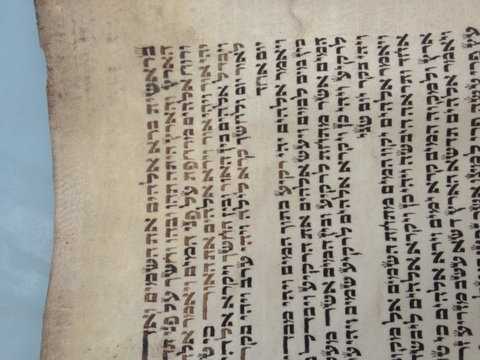 בראשית ברא אלהים את השמים ואת
הארץ והארץ היתה תהו ובהו וחשך על פני
ורוח אלהים מרחפת על פני המים ויאמר
יהי אור ויהי אור וירא אלהים את האור כי
ויבדל אלהים בין האור ובין החשך ויקרא
לאור יום ולחשך קרא לילה ויהי ערב ויהי בקר
יום אחד
ויאמר אלהים יהי רקיע בתוך המים ויהי
בין מים למים ויעש אלהים את הרקיע ויבדל
המים אשר מתחת לרקיע ובין המים אשר
לרקיע ויהי כן ויקרא אלהים לרקיע שמים ויהי
ויהי בקר יום שני
ויאמר אלהים יקוו המים מתחת השמים אל
אחד ותראה היבשה ויהי כן ויקרא אלהים
ארץ ולמקוה המים קרא ימים וירא אלהים כי
ויאמר אלהים תדשא הארץ דשא עשב מזריע
עץ פרי עשה פרי למינו אשר